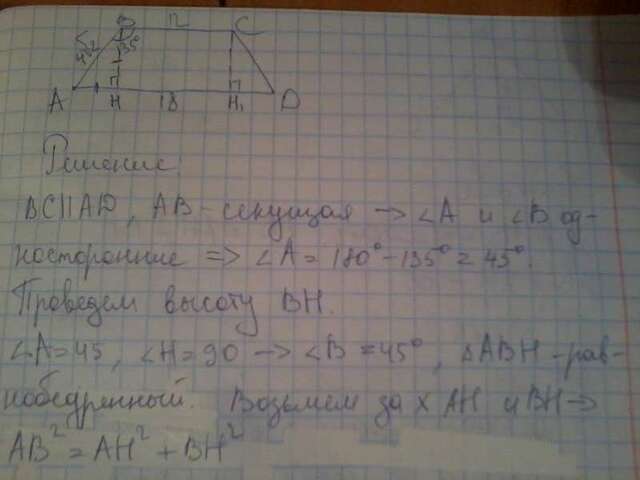 B 12 C
135°
A H 18 H₁ D
Решение
BC||AD, AB - секущая -> ∠A и ∠B од-
носторонние => ∠A = 180° - 135° = 45°.
Проведем высоту BH.
∠A=45, ∠H=90 -> ∠B=45°, ΔABH - рав-
нобедренный. Возьмем за x AH и BH ->
AB² = AH² + BH²